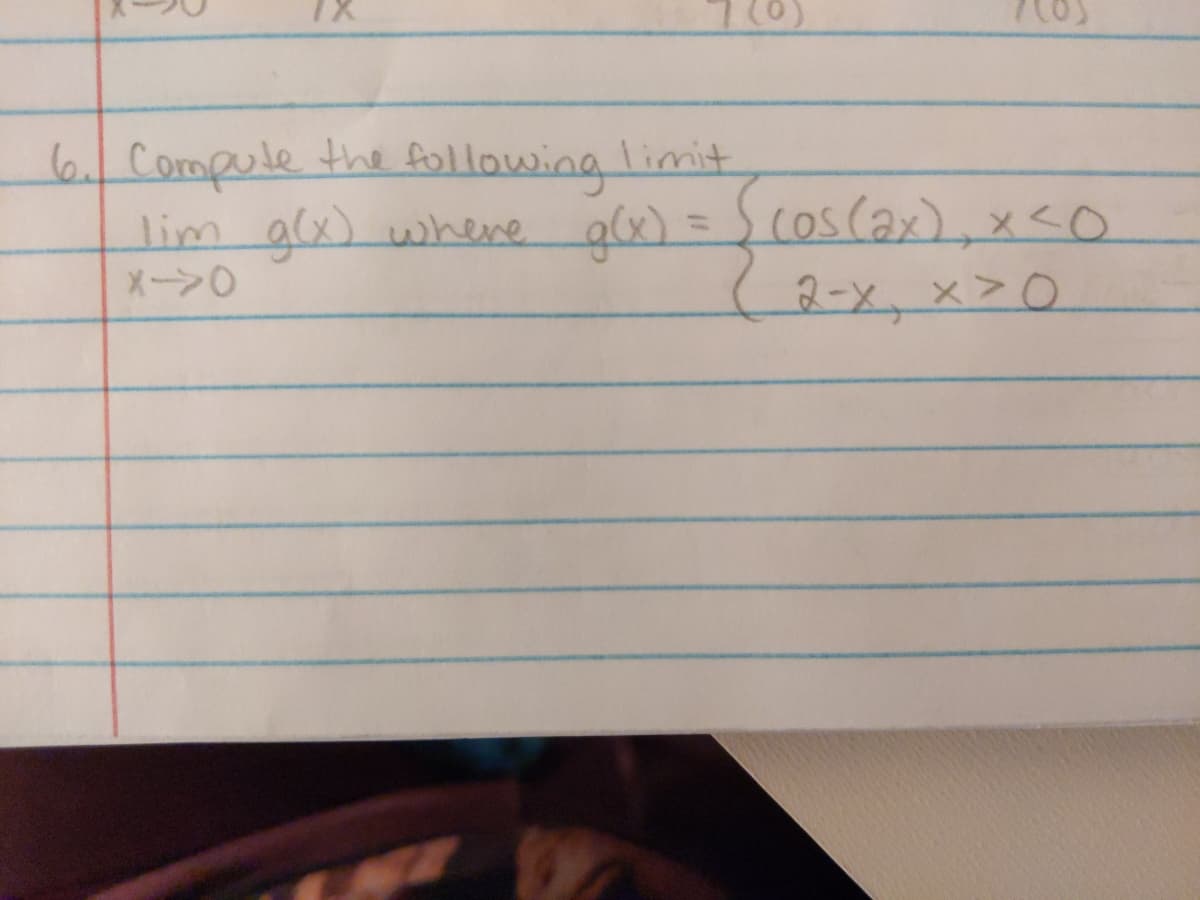 7(0)
6. Compute the following limit
lim g(x) where g(x) = { cos(2x), x<0
x->0 2-x, x>0